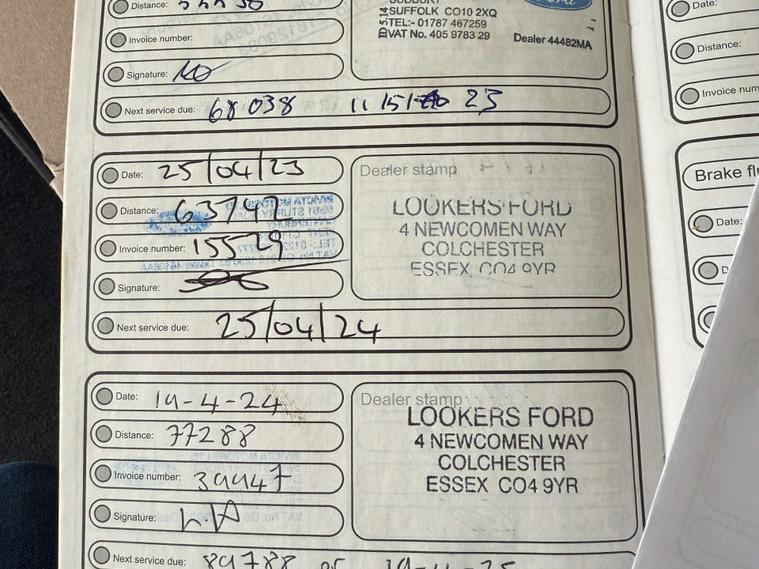 Distance:
SUFFOLK CO10 2XQ
TEL:- 01787 467259
VAT No. 405 9783 29
Dealer 44482MA
Invoice number:
Signature:
Next service due: 68 038 11/5/ 23
Date: 25/04/23
Distance: 63742
Invoice number: 15529
Signature:
Next service due: 25/04/24
Dealer stamp
LOOKERS FORD
4 NEWCOMEN WAY
COLCHESTER
ESSEX CO4 9YR
Date: 19-4-24
Distance: 77288
Invoice number: 39947
Signature:
Next service due: 89788 or 19-4-25
Dealer stamp
LOOKERS FORD
4 NEWCOMEN WAY
COLCHESTER
ESSEX CO4 9YR
Date:
Distance:
Invoice num
Brake fl
Date: